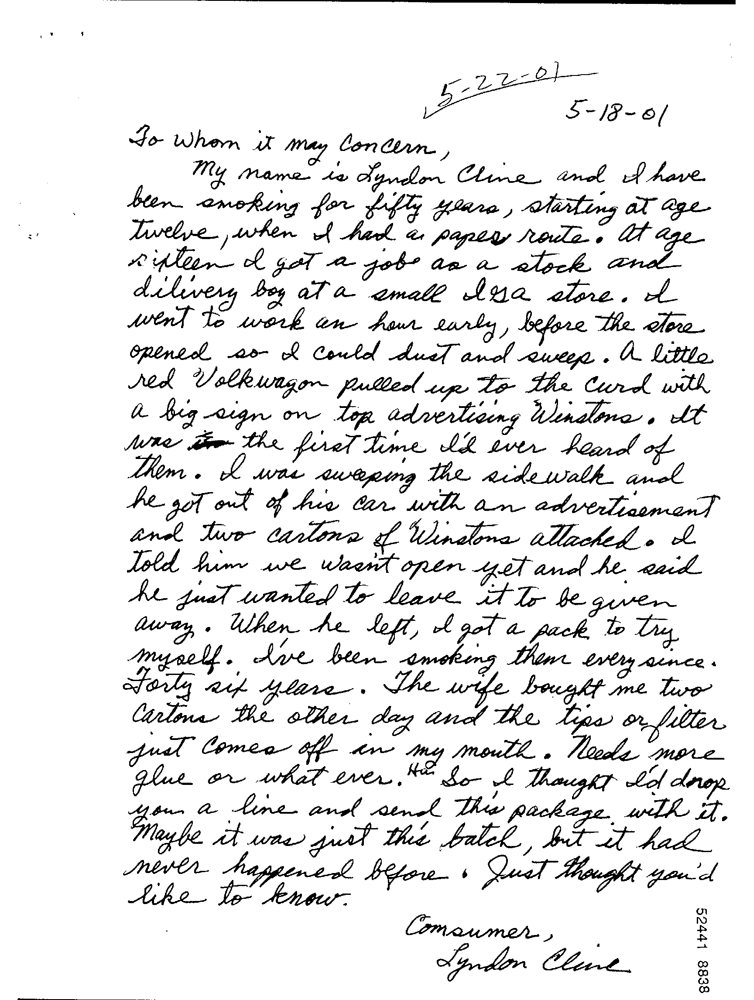 5-22-01
5-18-01
To Whom it may Concern,
My name is Lyndon Cline and I have
been smoking for fifty years, starting at age
twelve, when I had a paper route. At age
sixteen I got a job as a stock and
dilivery boy at a small Iga store. I
went to work an hour early, before the store
opened so I could dust and sweep. A little
red Volkwagon pulled up to the curd with
a big sign on top advertising Winstons. It
was the first time I'd ever heard of
them. I was sweeping the sidewalk and
he got out of his car with an advertisement
and two cartons of Winstons attached. I
told him we wasn't open yet and he said
he just wanted to leave it to be given
away. When he left, I got a pack to try
myself. I've been smoking them every since.
Forty six years. The wife bought me two
Cartons the other day and the tips or filter
just comes off in my mouth. Needs more
glue or what ever. Ha So I thought I'd drop
you a line and send this package with it.
Maybe it was just this batch, but it had
never happened before. Just thought you'd
like to know.
Comsumer,
Lyndon Cline
52441 8838